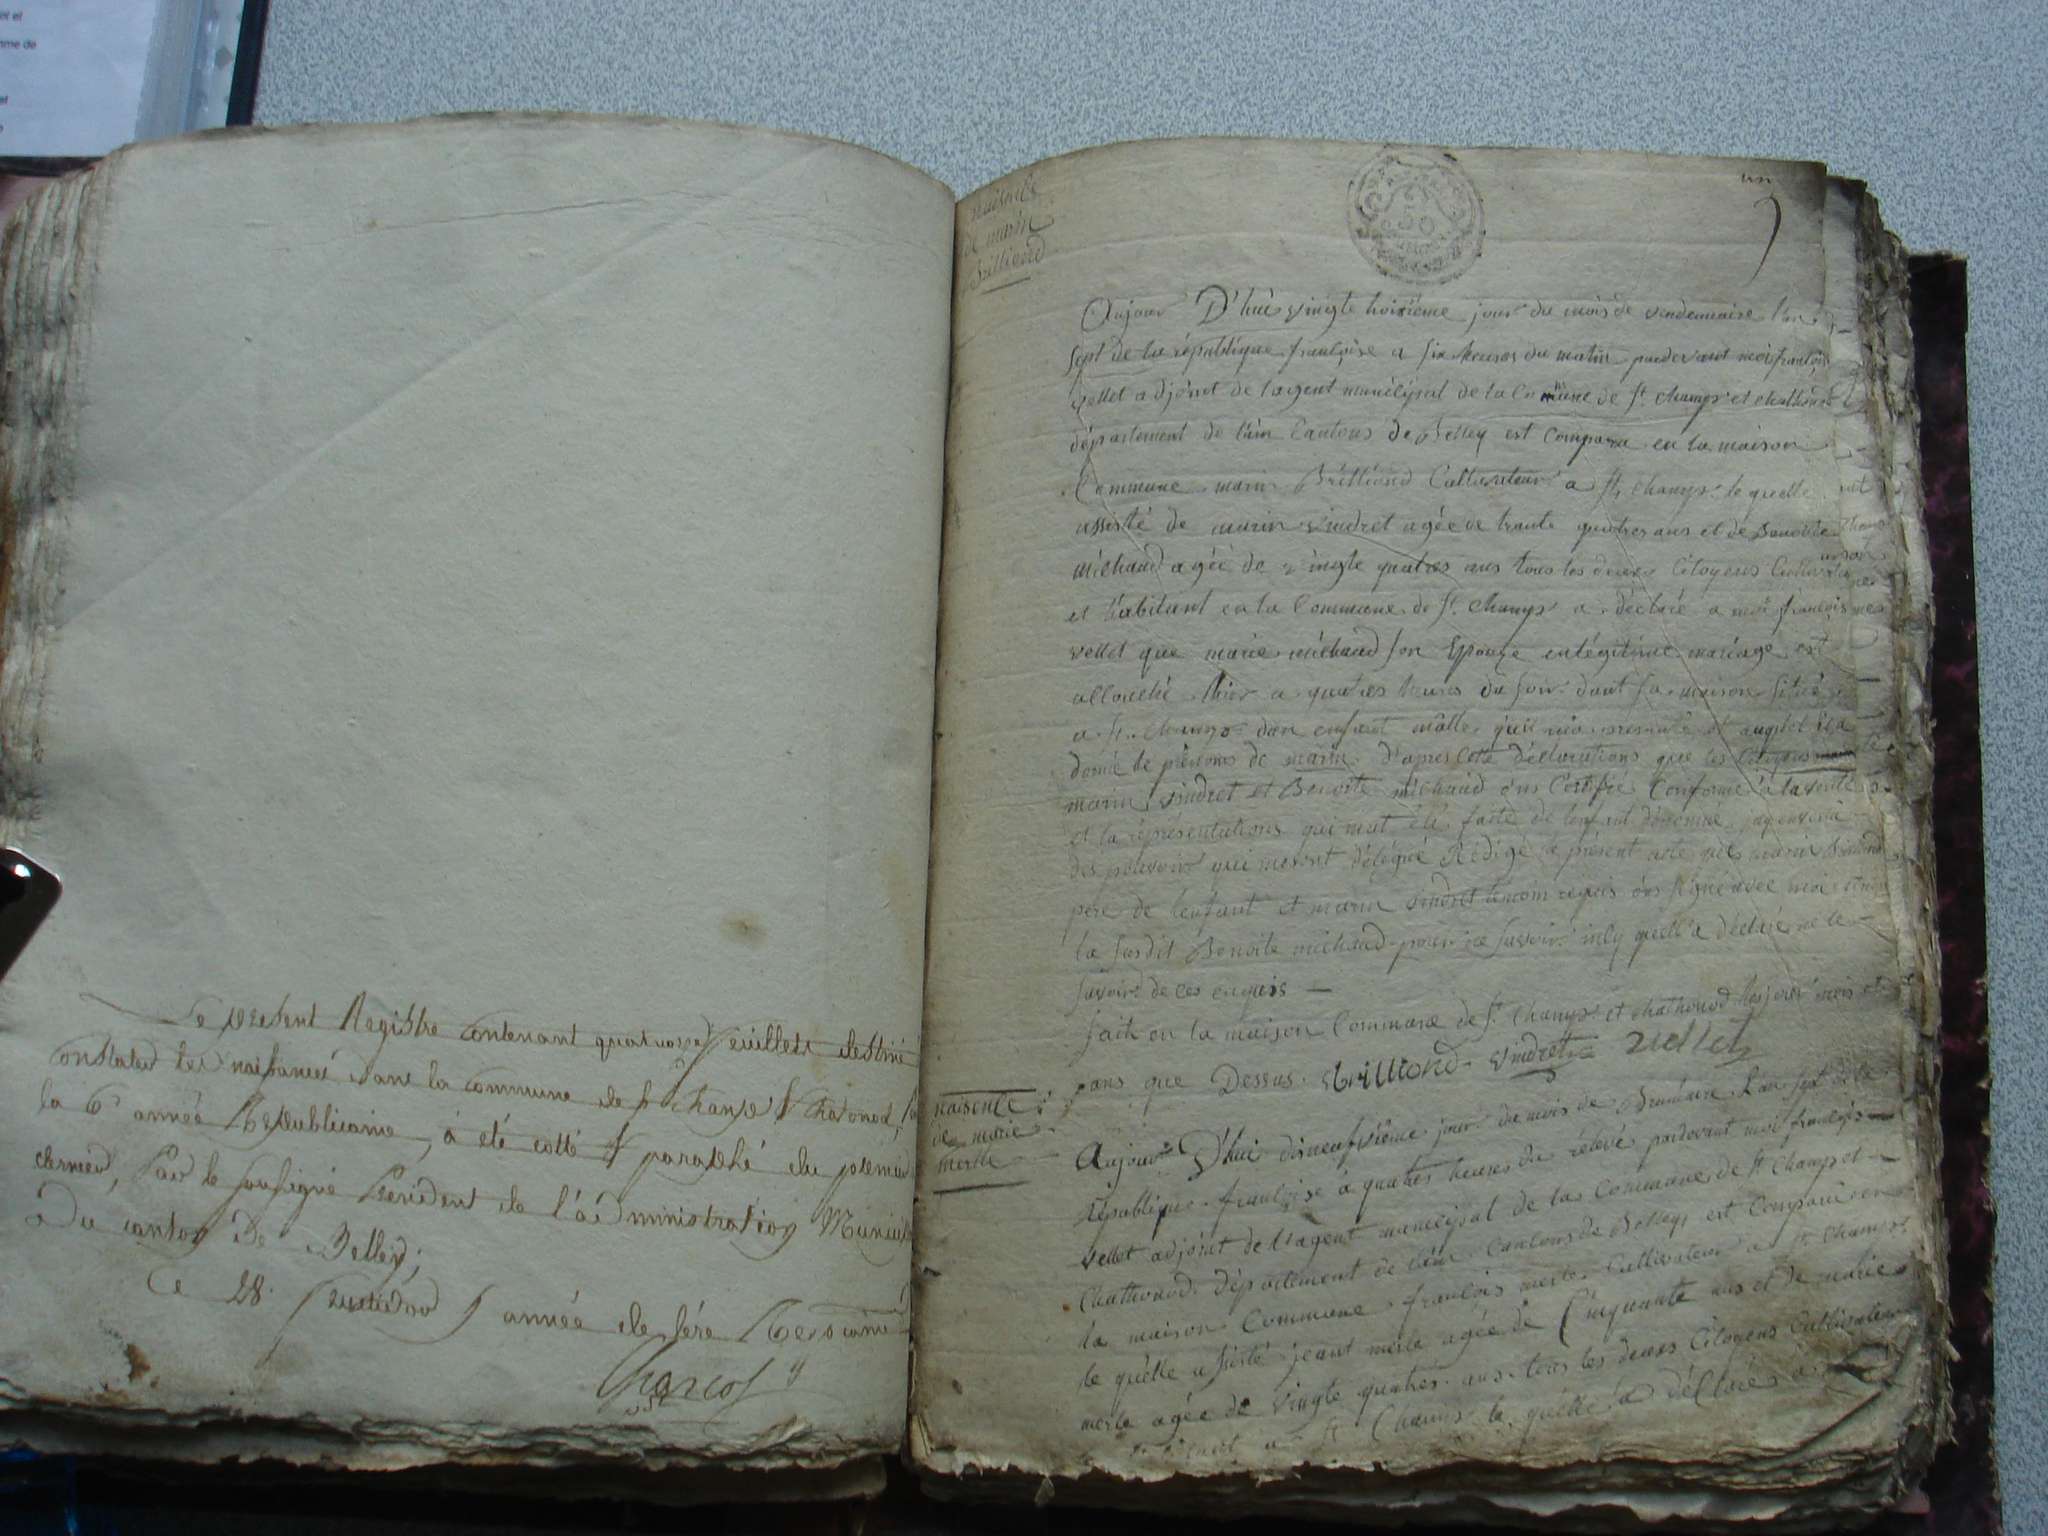 Le present Registre contenant quatorze feuillets destiné
constater les naissances dans la commune de st Champs & Chatonod,
la 6e année Republicaine, à été cotté & paraphé du premier
dernier, par le soussigné President de l'administration Municip
du canton de Belley;
Ce 28. année de l'ére
naisence
de marin
Brilliond
un
Aujour D'hui vingte troisieme jour du mois de vendemiaire l'an
sept de la république françoise a six heures du matin pardevant moi françois
vellet adjoint de l'agent municipal de la Commune de st Champs et Chathonod
département de l'ain Cantons de Belley est Comparu en la maison
Commune marin Brilliond Cultivateur a st Champs le quelle
assisté de marin vindret agée de trante quatres ans et de Benoite
michaud agée de vingte quatres ans tous les deux Citoyens
et habitant en la Commune de st Champs a déclaré a moi françois
vellet que marie michaud son Epouze en légitime mariage est
allouché hier a quatres heures du soir dant sa maison situé
a st Champs d'un enfant mâlle qu'il m'a présenté et auquel il a
donné le prénoms de marin. D'après cette déclarations que les Citoyens
marin vindret et Benoite michaud ons Certifié Conforme a la
et la représentations qui mat été faite de lenfant dénomé
des pouvoirs qui me sont délégué Rédigé le présent acte que marin Brilliond
père de lenfant et marin vindret temoin requis ons signé avec moi
la susdit Benoite michaud pour ne savoir
savoir de ces enquis
fait en la maison Commune de st Champs et Chathonod les jour mois et
ans que Dessus. Brilliond vindret vellet
naisence
de marie
merle
Aujour D'hui disneufvième jour du mois de Brumaire L'an sept de la
république françoise à quatres heures du pardevant moi françois
vellet adjoint de l'agent municipal de la Commune de st Champs et
Chathonod département de l'ain Cantons de Belley est Comparu en
la maison Commune françois merle Cultivateur a st Champs
le quelle assisté jeant merle agée de Cinquante ans et de marie
merle agée de vingte quatres ans tous les deux Citoyens
a st Champs le quelle a déclaré a